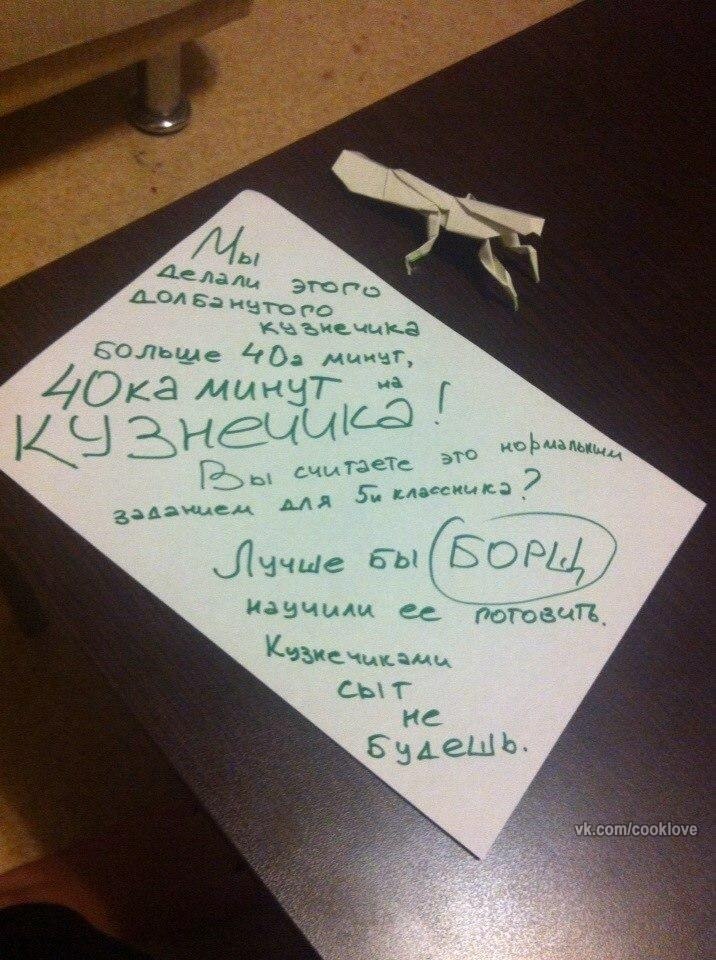 Мы
делали этого
долбанутого
кузнечика
больше 40а минут,
40ка минут на
кузнечика!
Вы считаете это нормальным
заданием для 5и классника?
Лучше бы БОРЩ
научили ее готовить.
Кузнечиками
сыт
не
будешь.
vk.com/cooklove